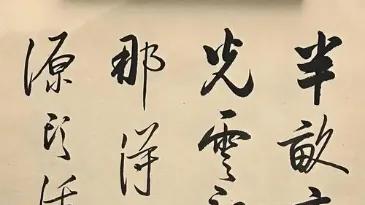 半畝
光雲
那得
源頭活